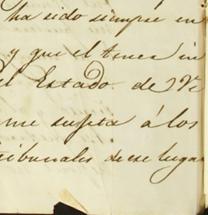 ha sido siempre en
y que el tener in
el Estado de
me sujeta á los
tribunales de ese lugar